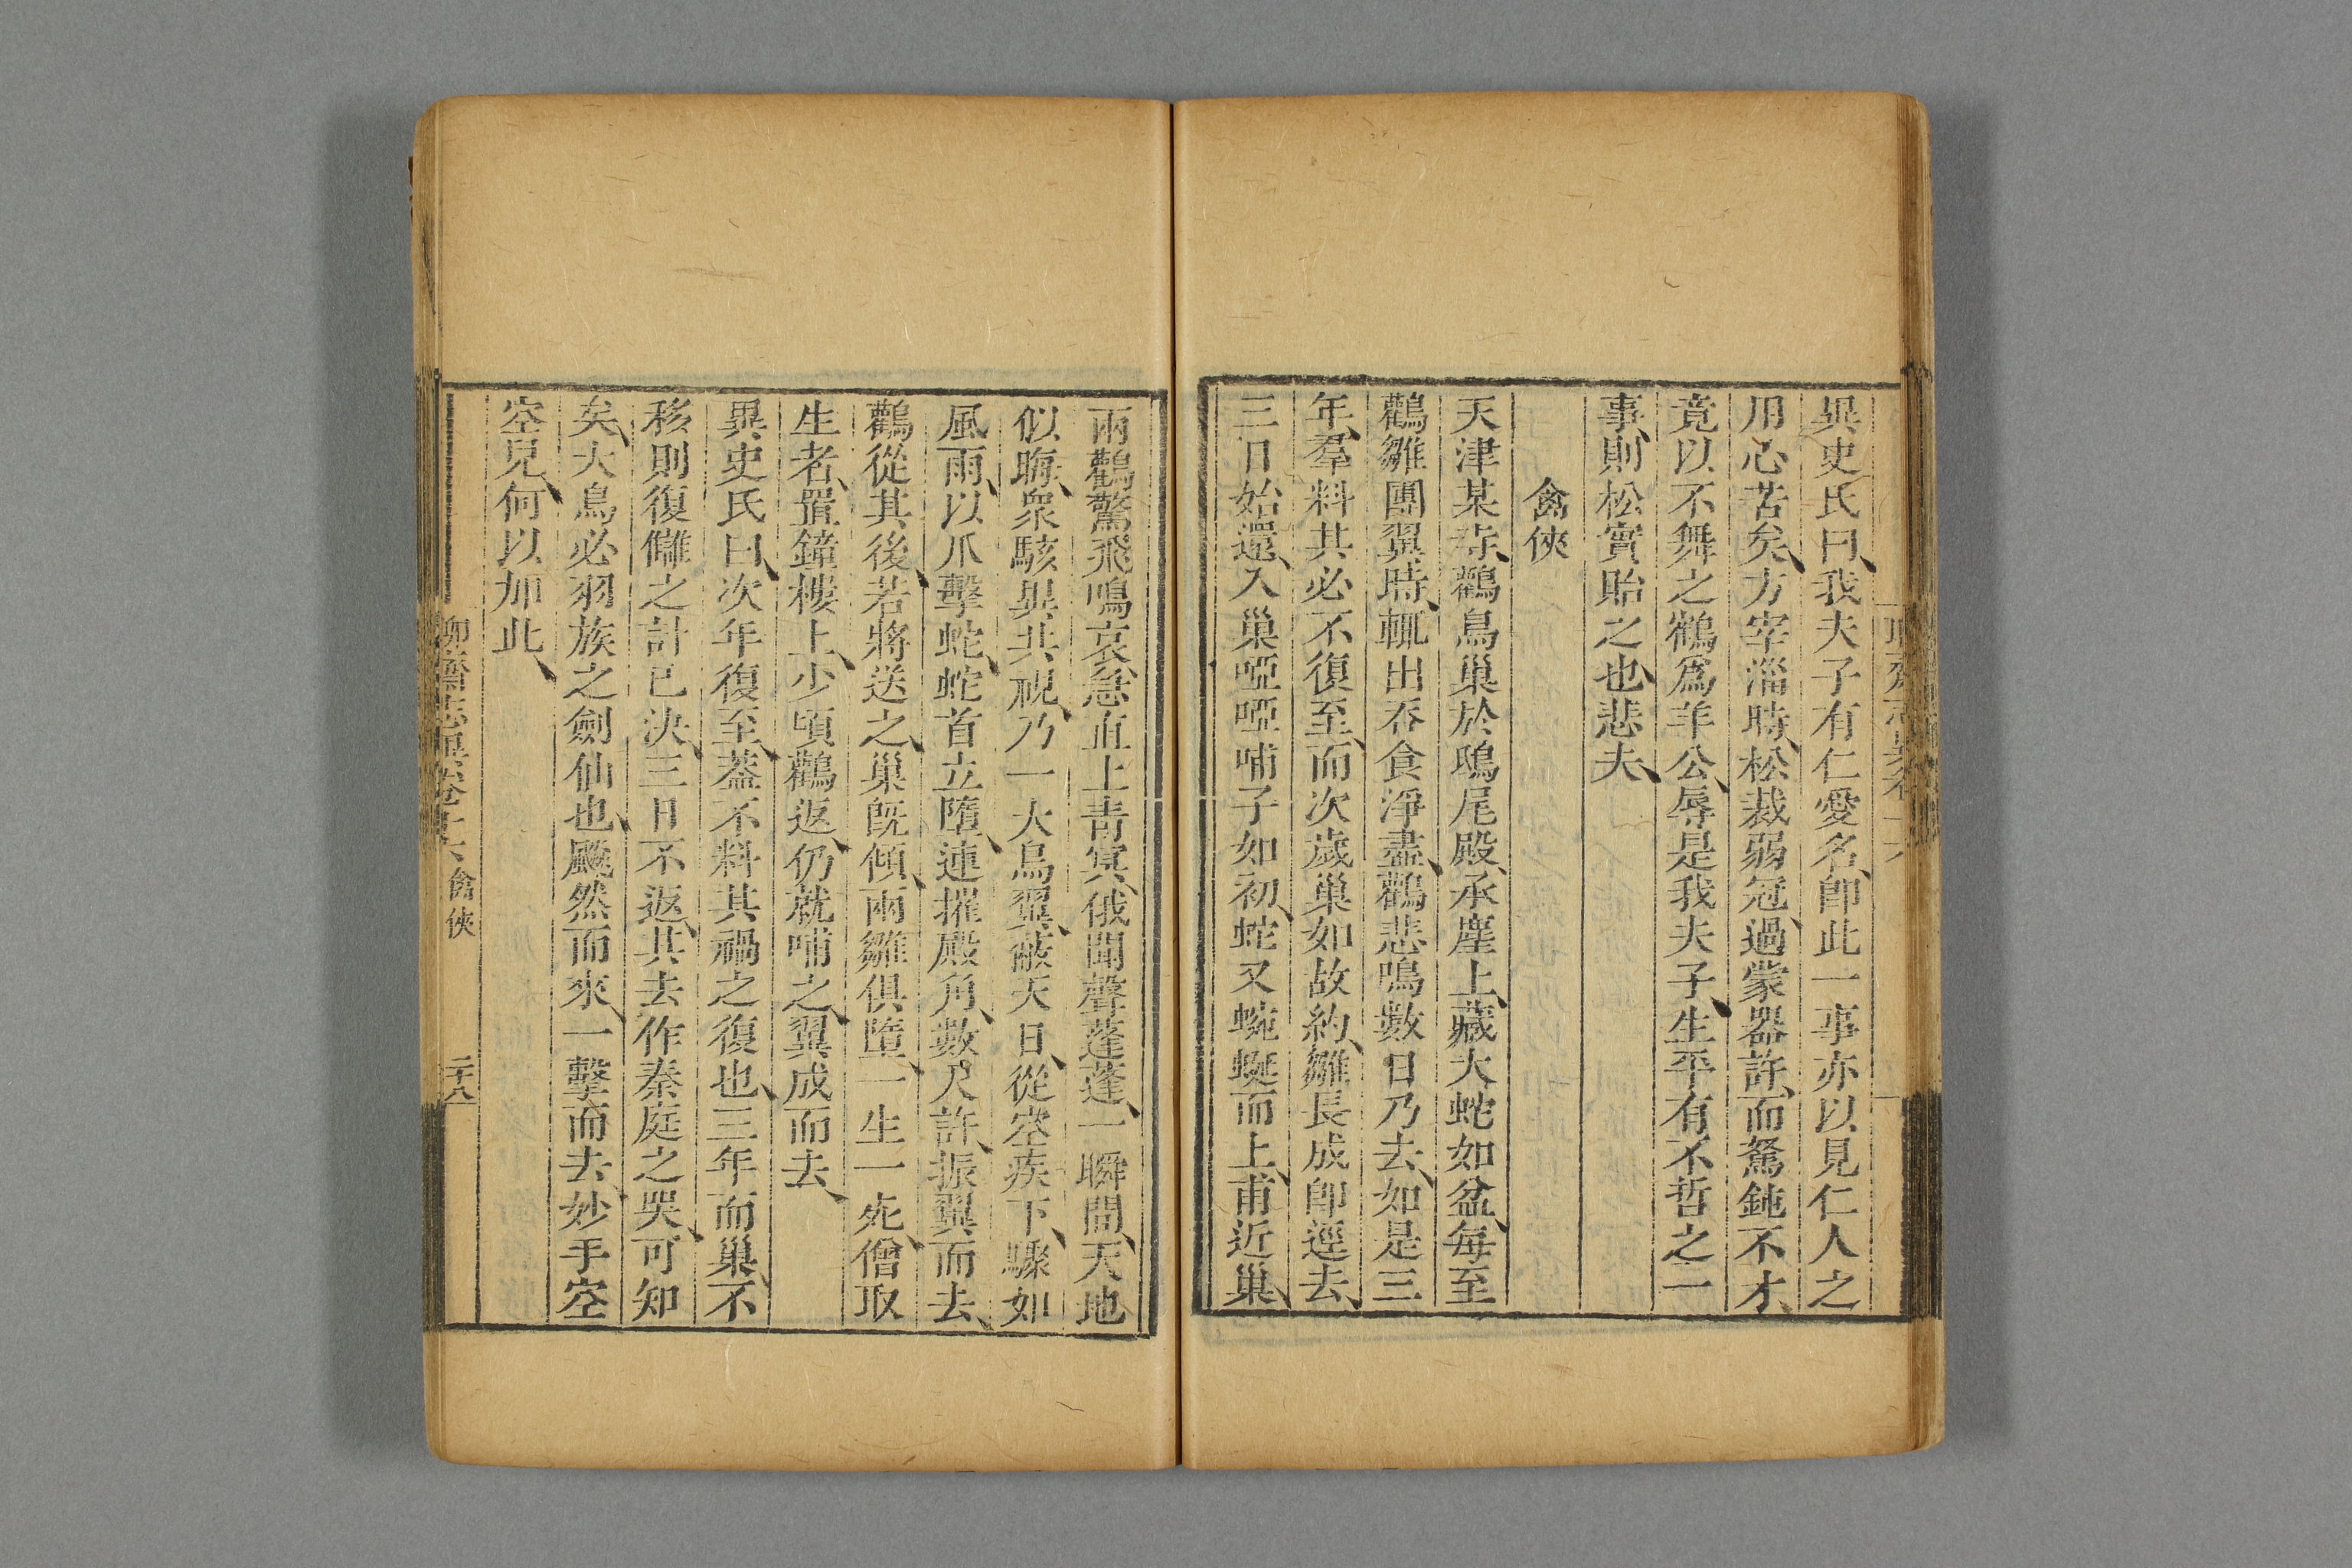 異史氏曰、我夫子有仁愛名、卽此一事亦以見仁人之
用心苦矣、方宰淄時、松裁弱冠、過蒙器許、而駑鈍不才、
竟以不舞之鶴爲羊公、辱是我夫子、生平有不哲之一
事、則松實貽之也、悲夫、
禽俠
天津某寺、鸛鳥巢於鴟尾殿、承塵上、藏大蛇如盆、每至
鸛雛團翼時、輒出吞食淨盡、鸛悲鳴數日乃去、如是三
年、羣料其必不復至、而次歲巢如故、約、雛長成卽逕去、
三日始還、入巢啞啞哺子如初、蛇又蜿蜒而上、甫近巢、
兩鸛驚飛鳴哀急直上靑冥、俄聞聲蓬蓬、一瞬間、天地
似晦、衆駭異共視、乃一大鳥翼、蔽天日、從空疾下、驟如
風雨、以爪擊蛇、蛇首立墮、連摧殿角、數尺許、振翼而去、
鸛從其後、若將送之、巢旣傾、兩雛俱墮、一生一死、僧取
生者、置鐘樓上、少頃鸛返、仍就哺之、翼成而去、
異史氏曰、次年復至、蓋不料其禍之復也、三年而巢不
移則復讎之計已決、三日不返、其去作秦庭之哭、可知
矣、大鳥必羽族之劍仙也、飈然而來、一擊而去、妙手空
空兒、何以加此、
聊齋志異卷十六 禽俠 二十八